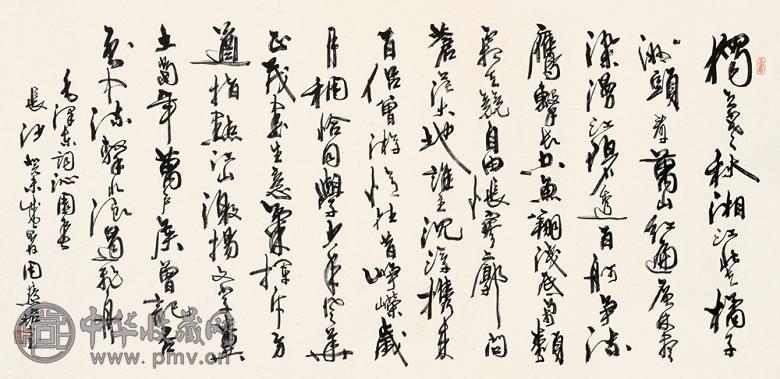 獨立寒秋湘江北去橘子
洲頭看萬山紅遍層林盡
染漫江碧透百舸争流
鷹擊長空魚翔淺底萬類
霜天競自由悵寥廓問
蒼茫大地誰主沉浮携來
百侣曾游憶往昔崢嶸歲
月稠恰同學少年風華
正茂書生意氣揮斥方
遒指點江山激揚文字糞
土當年萬户侯曾記否
到中流擊水浪遏飛舟
毛澤东詞沁園春
長沙 癸未歲 周慧珺
中华收藏网
www.pmv.cn